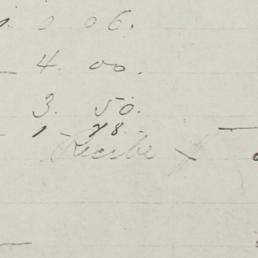 06.
4. 00.
3. 50.
1 - 78.
Recibe